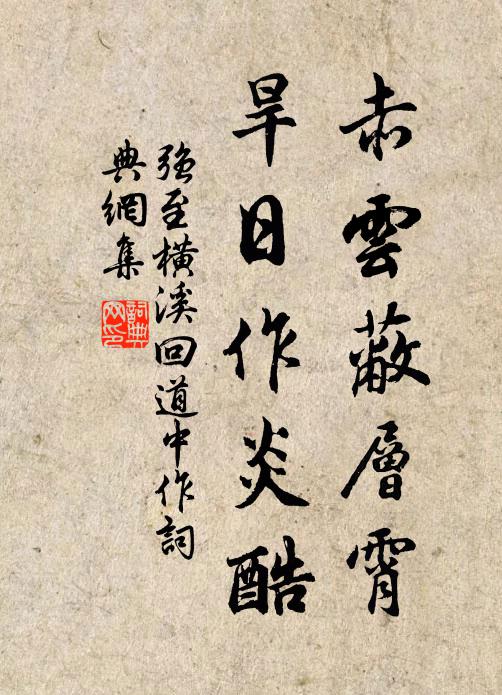 赤雲蔽層霄
旱日作炎酷
強至橫溪回道中作詞
典網集
詞典
网印